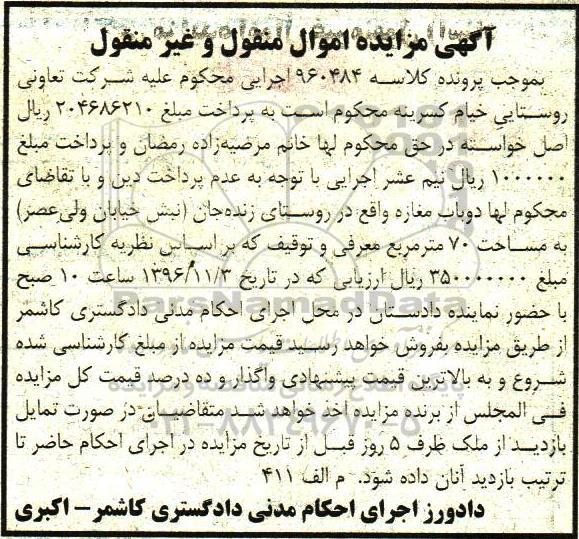 آگهی مزایده اموال منقول و غیر منقول
بموجب پرونده کلاسه ۹۶۰۴۸۴ اجرایی محکوم علیه شرکت تعاونی
روستایی خیام کسرینه محکوم است به پرداخت مبلغ ۲۰۴۶۸۶۲۱۰ ریال
اصل خواسته در حق محکوم لها خانم مرضیه‌زاده رمضان و پرداخت مبلغ
۱۰۰۰۰۰۰ ریال نیم عشر اجرایی با توجه به عدم پرداخت دین و با تقاضای
محکوم لها دوباب مغازه واقع در روستای زنده‌جان (نبش خیابان ولی‌عصر)
به مساحت ۷۰ مترمربع معرفی و توقیف که بر اساس نظریه کارشناسی
مبلغ ۳۵۰۰۰۰۰۰۰ ریال ارزیابی که در تاریخ ۱۳۹۶/۱۱/۳ ساعت ۱۰ صبح
با حضور نماینده دادستان در محل اجرای احکام مدنی دادگستری کاشمر
از طریق مزایده بفروش خواهد رسید قیمت مزایده از مبلغ کارشناسی شده
شروع و به بالاترین قیمت پیشنهادی واگذار و ده درصد قیمت کل مزایده
فی المجلس از برنده مزایده اخذ خواهد شد متقاضیان در صورت تمایل
بازدید از ملک ظرف ۵ روز قبل از تاریخ مزایده در اجرای احکام حاضر تا
ترتیب بازدید آنان داده شود. م الف ۴۱۱
دادورز اجرای احکام مدنی دادگستری کاشمر - اکبری
ParsNamadData
۰۲۱-۸۸۳۴۹۶۷۰-۵